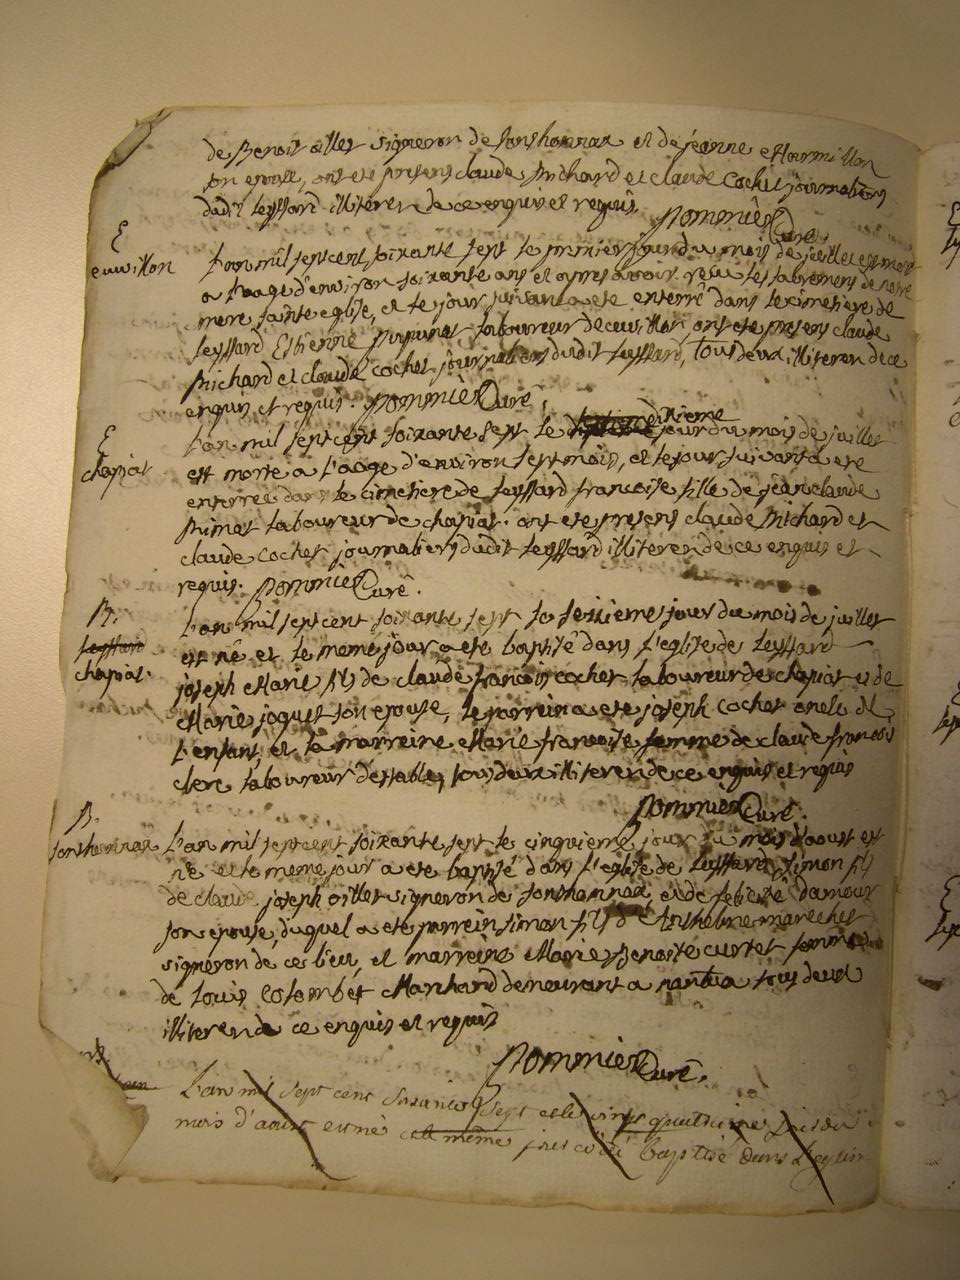 de Benoit oillet vigneron de sonthonnax et de jeanne Marmillon
son epouse, ont eté presens claude Michard et claude Cochet journaliers
dudit Leyssard illiteren de ce enquis et requis.
Pommier Curé.
E
L'an mil sept cent soixante sept le premier jour du mois de juillet est mort
euvillon
a l'aage d'environ soixante ans et apres avoir reçu les sacremens de notre
mere sainte eglise, et le jour suivant a eté enterré dans le cimetiere de
Leyssard Estienne laboureur de euvillon, ont eté presens claude
Michard et claude cochet journaliers dudit Leyssard, tous deux illiteren de ce
enquis et requis. Pommier Curé.
E
L'an mil sept cent soixante sept le dixieme jour du mois de juillet
chapiat
est morte a l'aage d'environ sept mois, et le jour suivant a eté
enterrée dans le cimetiere de Leyssard francoise fille de jean claude
laboureur de chapiat. ont eté presens claude Michard et
claude cochet journaliers dudit Leyssard illiteren de ce enquis et
requis. Pommier Curé.
B.
L'an mil sept cent soixante sept le seizieme jour du mois de juillet
Leyssard
est né et le meme jour a eté baptisé dans l'eglise de Leyssard
chapiat.
joseph Marie fils de claude francois cochet laboureur de chapiat et de
Marie joquet son epouse, le parrein a eté joseph cochet oncle de
l'enfant, et la marreine Marie francoise femme de claude francois
clerc laboureur d'estables, tous deux illiteren de ce enquis et requis
Pommier Curé.
B.
sonthonnax
L'an mil sept cent soixante sept le cinquieme jour du mois d'aoust est
né et le meme jour a eté baptisé dans l'eglise de Leyssard, simon fils
de claude joseph oillet vigneron de sonthonnax, et de d'amour
son epouse, duquel a eté parrein simon fils d'Anthelme marechet
vigneron de ce lieu, et marreine Marie Benoite curtet femme
de Louis Colombet Marchand demeurant a nantua tous deux
illiteren de ce enquis et requis
Pommier Curé.
L'an mil sept cent soixante sept et le vingt quatrieme du
mois d'aoust est né et le même jour a été baptisé dans l'eglise